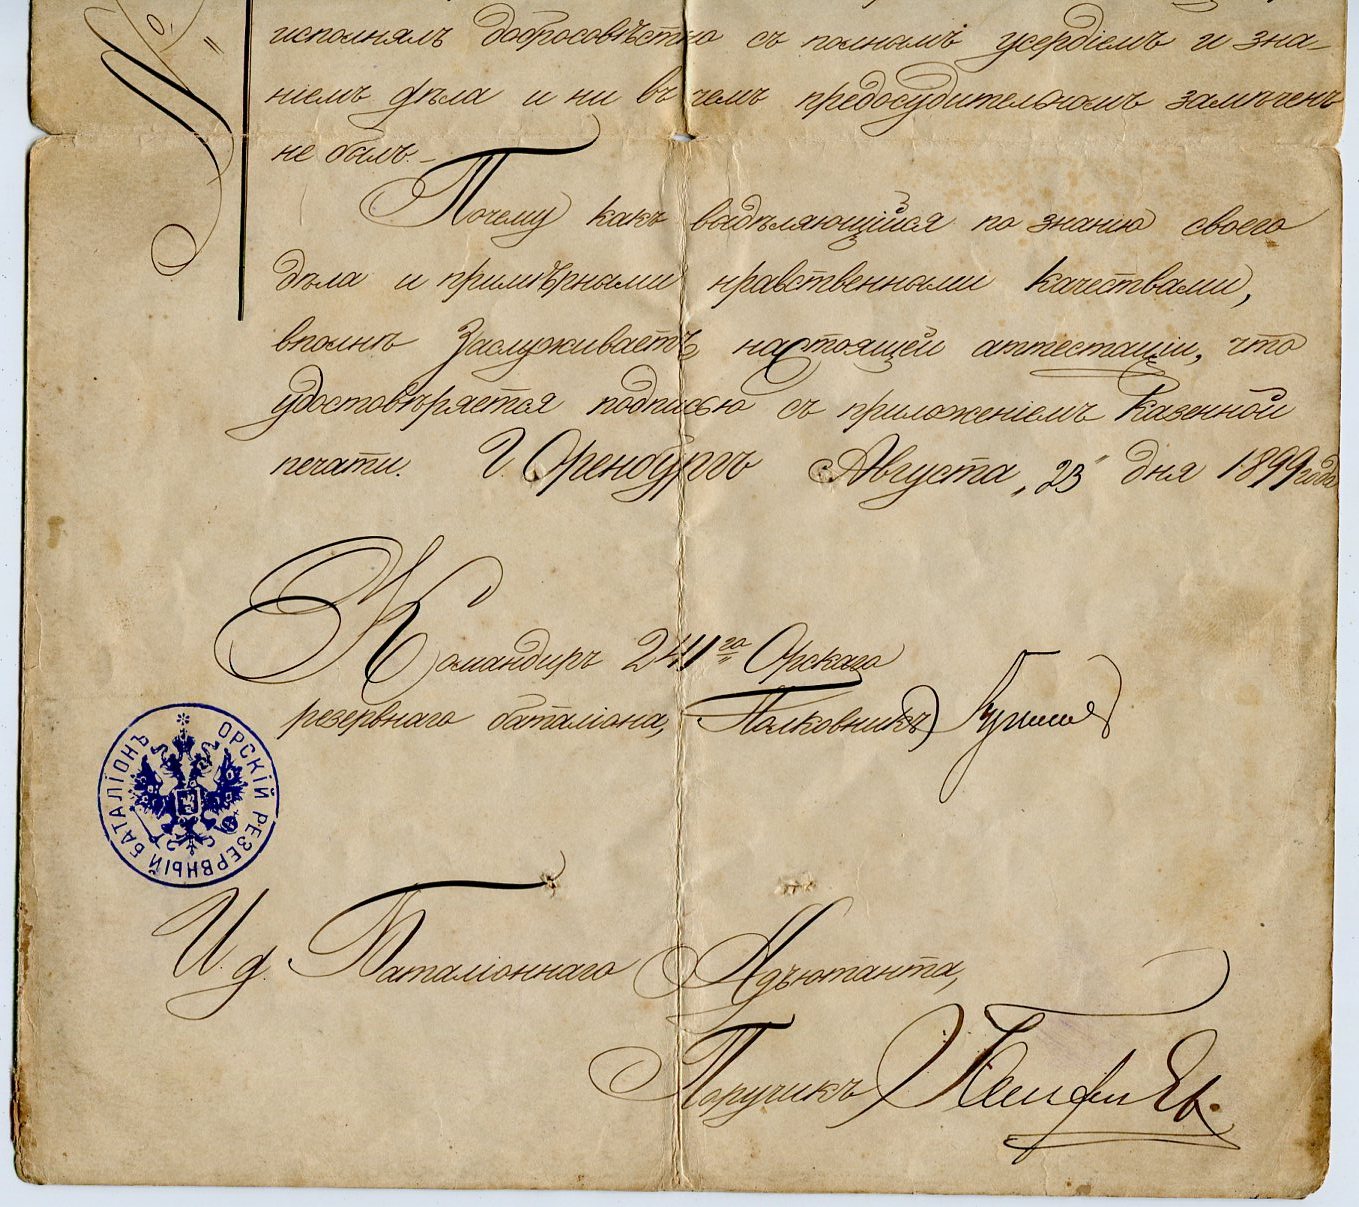 №
исполнялъ добросовѣстно съ полнымъ усердіемъ и зна-
ніемъ дѣла и ни въ чемъ предосудительномъ замѣченъ
не былъ.-
Почему какъ выдѣляющійся по знанію своего
дѣла и примѣрными нравственными качествами,
вполнѣ заслуживаетъ настоящей аттестаціи, что
удостовѣряется подписью съ приложеніемъ казенной
печати. Г. Оренбургъ Августа „23" дня 1899 года
Командиръ 241го Орскаго
резервнаго баталіона, Полковникъ
ОРСКІЙ РЕЗЕРВНЫЙ БАТАЛІОНЪ
И. д. Баталіоннаго Адъютанта,
Поручикъ